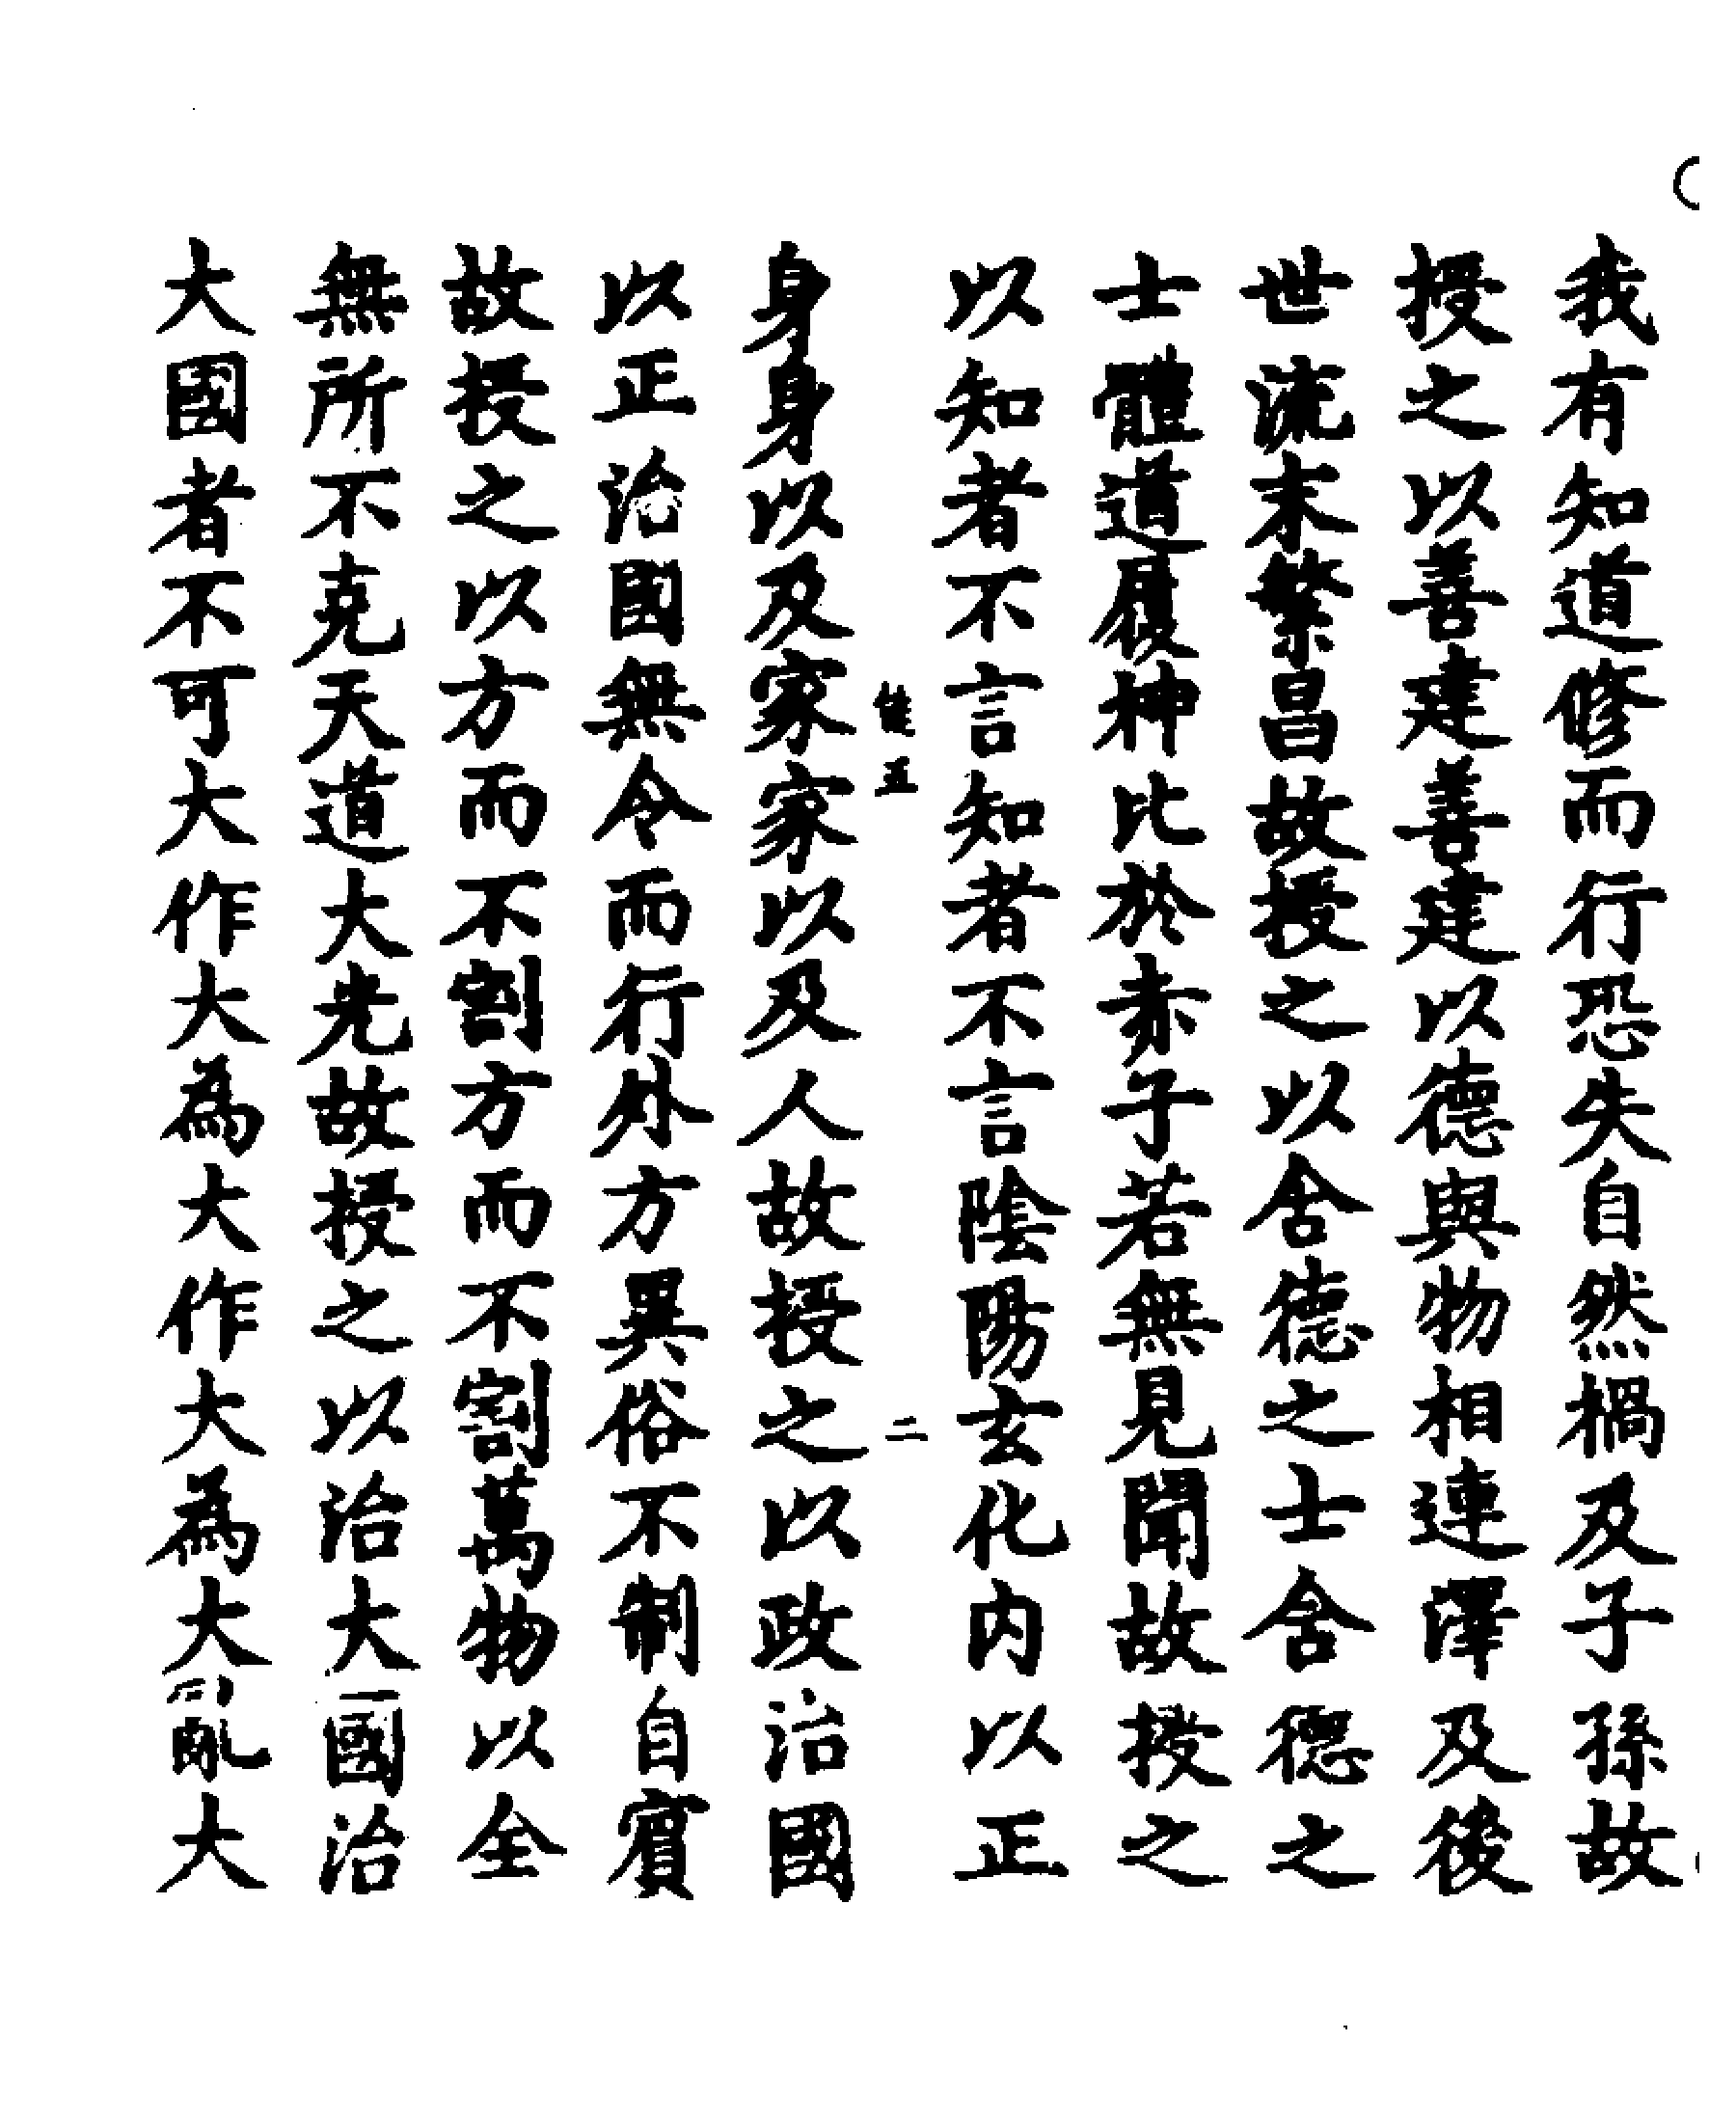 我有知道修而行恐失自然禍及子孫故
授之以善建善建以德與物相連澤及後
世流末繁昌故授之以含德之士含德之
士體道履神比於赤子若無見聞故授之
以知者不言知者不言陰陽玄化内以正
二
身身以及家家以及人故授之以政治國
以正治國無令而行外方異俗不制自賓
故授之以方而不割方而不割萬物以全
無所不克天道大光故授之以治大國治
大國者不可大作大為大作大為大亂大